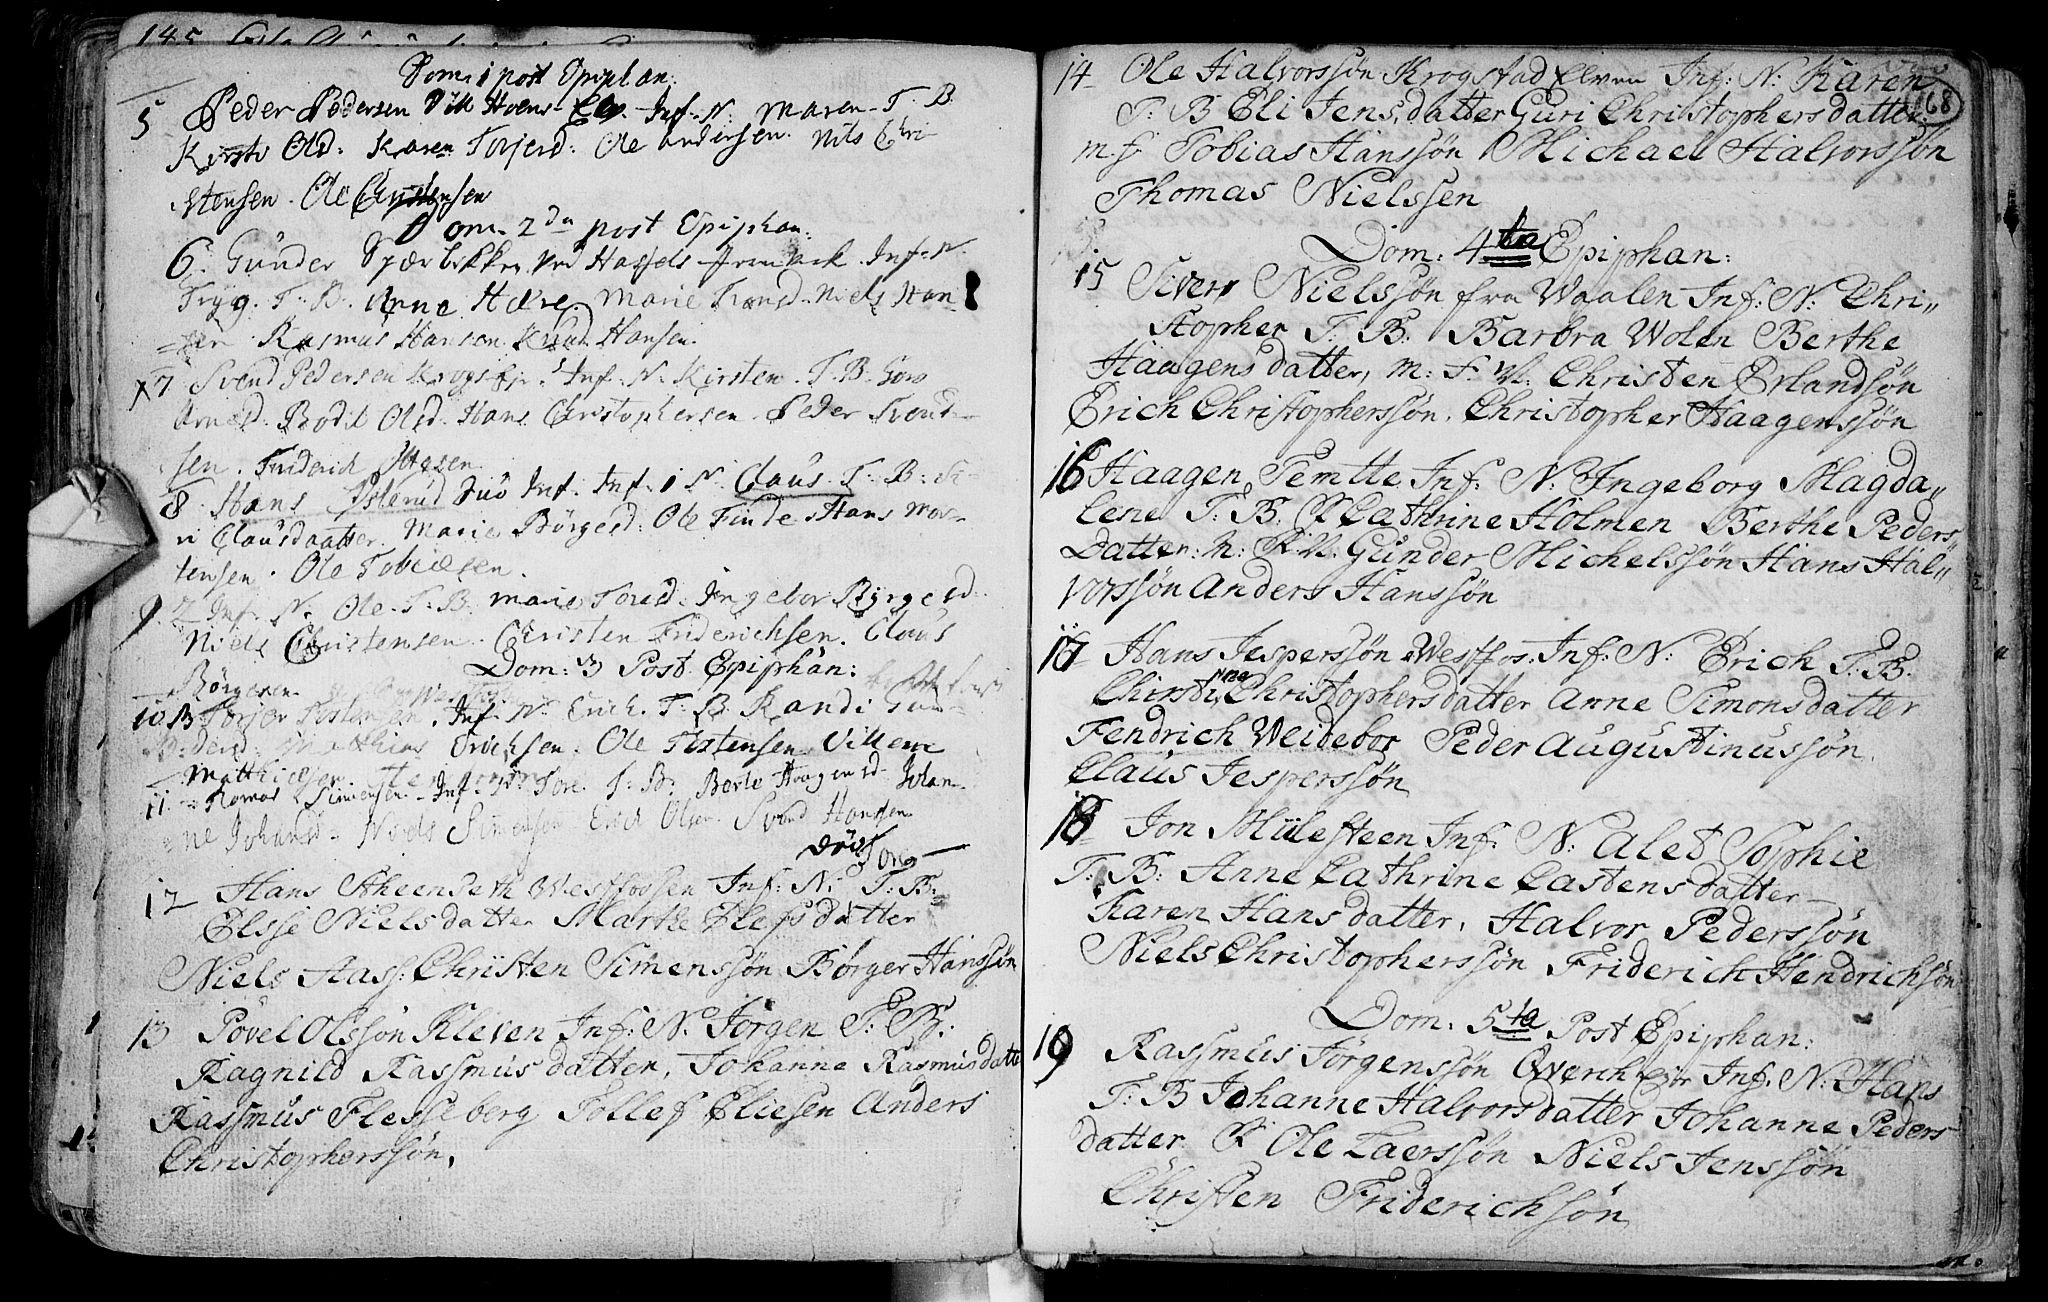 Dom: 1 post Epiphan:
5 Peder Pedersen Hoens Inf: N: Maren T. B.
Kirsti Olsd: Karen Torjersd: Ole Andersen. Nils Chri
stensen. Ole Christensen
Dom. 2da post Epiphan:
6. Günder ved Hassels Inf: N.
Tryg. T. B. Anne Marie Niels Han
sen Rasmus Hansen Knud Hansen.
7 Svend Pedersen Inf: N: Kirsten. T. B.
Arnesd. Bodil Olsd. Hans Christophersen. Peder Svend
sen. Friderich
8. Hans Østerud Inf: 1 N. Claus. T: B: Si
ri Clausdaatter. Marie Børgesd: Ole Hans Mor
tensen. Ole Tobiesen.
9. 2 Inf. N. Ole. T: B. Marie Toresd: Ingebor Børgesd.
Niels Christensen. Christen Friderichsen. Claus
Dom: 3 Post Epiphan:
Børgesen
10 Torjer Inf: N: Erich. T. B. Randi Gun
dersd: Matthias Erichsen. Ole Villem
Matthiesen.
11 Simensen. Inf: N: Tore. T: B: Berte Haagensd. Johan
ne Johansd. Niels Simensen Erich Olsen. Svend Hanssen
død
12 Hans Westfossen Inf: N: T: B:
Elsse Nielsdatter Marthe datter
Niels Aass: Christen Simenssøn Børger Hanssøn
13 Povel Olssøn Kleven Inf: N: Jørgen T: B:
Ragnild Rassmusdatter, Johanne Rasmusdatte
Rassmus Flesseberg Tollef Eliesen Anders
Christopherssøn.
68
14 Ole Halvorssøn Krogstad Elven Inf: N: Karen
T: B Eli Jensdatter Guri Christophersdatter
m. f Tobias Hanssøn Michael Halvorssøn
Thomas Nielssen
Dom: 4ta Epiphan:
15 Siver Nielssøn fra Waalen Inf: N: Chri„
stopher T. B. Barbra Wolen Berthe
Haagensdatter, m: f. Christen Erlandsøn
Erich Christopherssøn. Christopher Haagenssøn
16 Haagen Temtte Inf: N: Ingeborg Magda„
lene T: B. Cathrine Holmen Berthe Peders„
datter. Günder Michelssøn Hans Hal„
vorssøn Anders Hanssøn
17 Hans Jesperssøn Westfos: Inf: N: Erich T: B.
Christi Christophersdatter Anne Simonsdatter
Fendrich Weidebor Peder Augustinussøn.
Claus Jesperssøn
18 Jon Mülesteen Inf: N: Alet Sophie
T: B: Anne Cathrine Castensdatter
Karen Hansdatter. Halvor Pederssøn
Niels Christopherssøn Friderich Hendrichsøn
Dom: 5ta Post Epiphan:
19 Rassmus Jörgenssøn Inf: N: Hans
T: B Johanne Halvorsdatter Johanne Peders
datter Ole Laerssøn Niels Jenssøn
Christen Friderichsøn